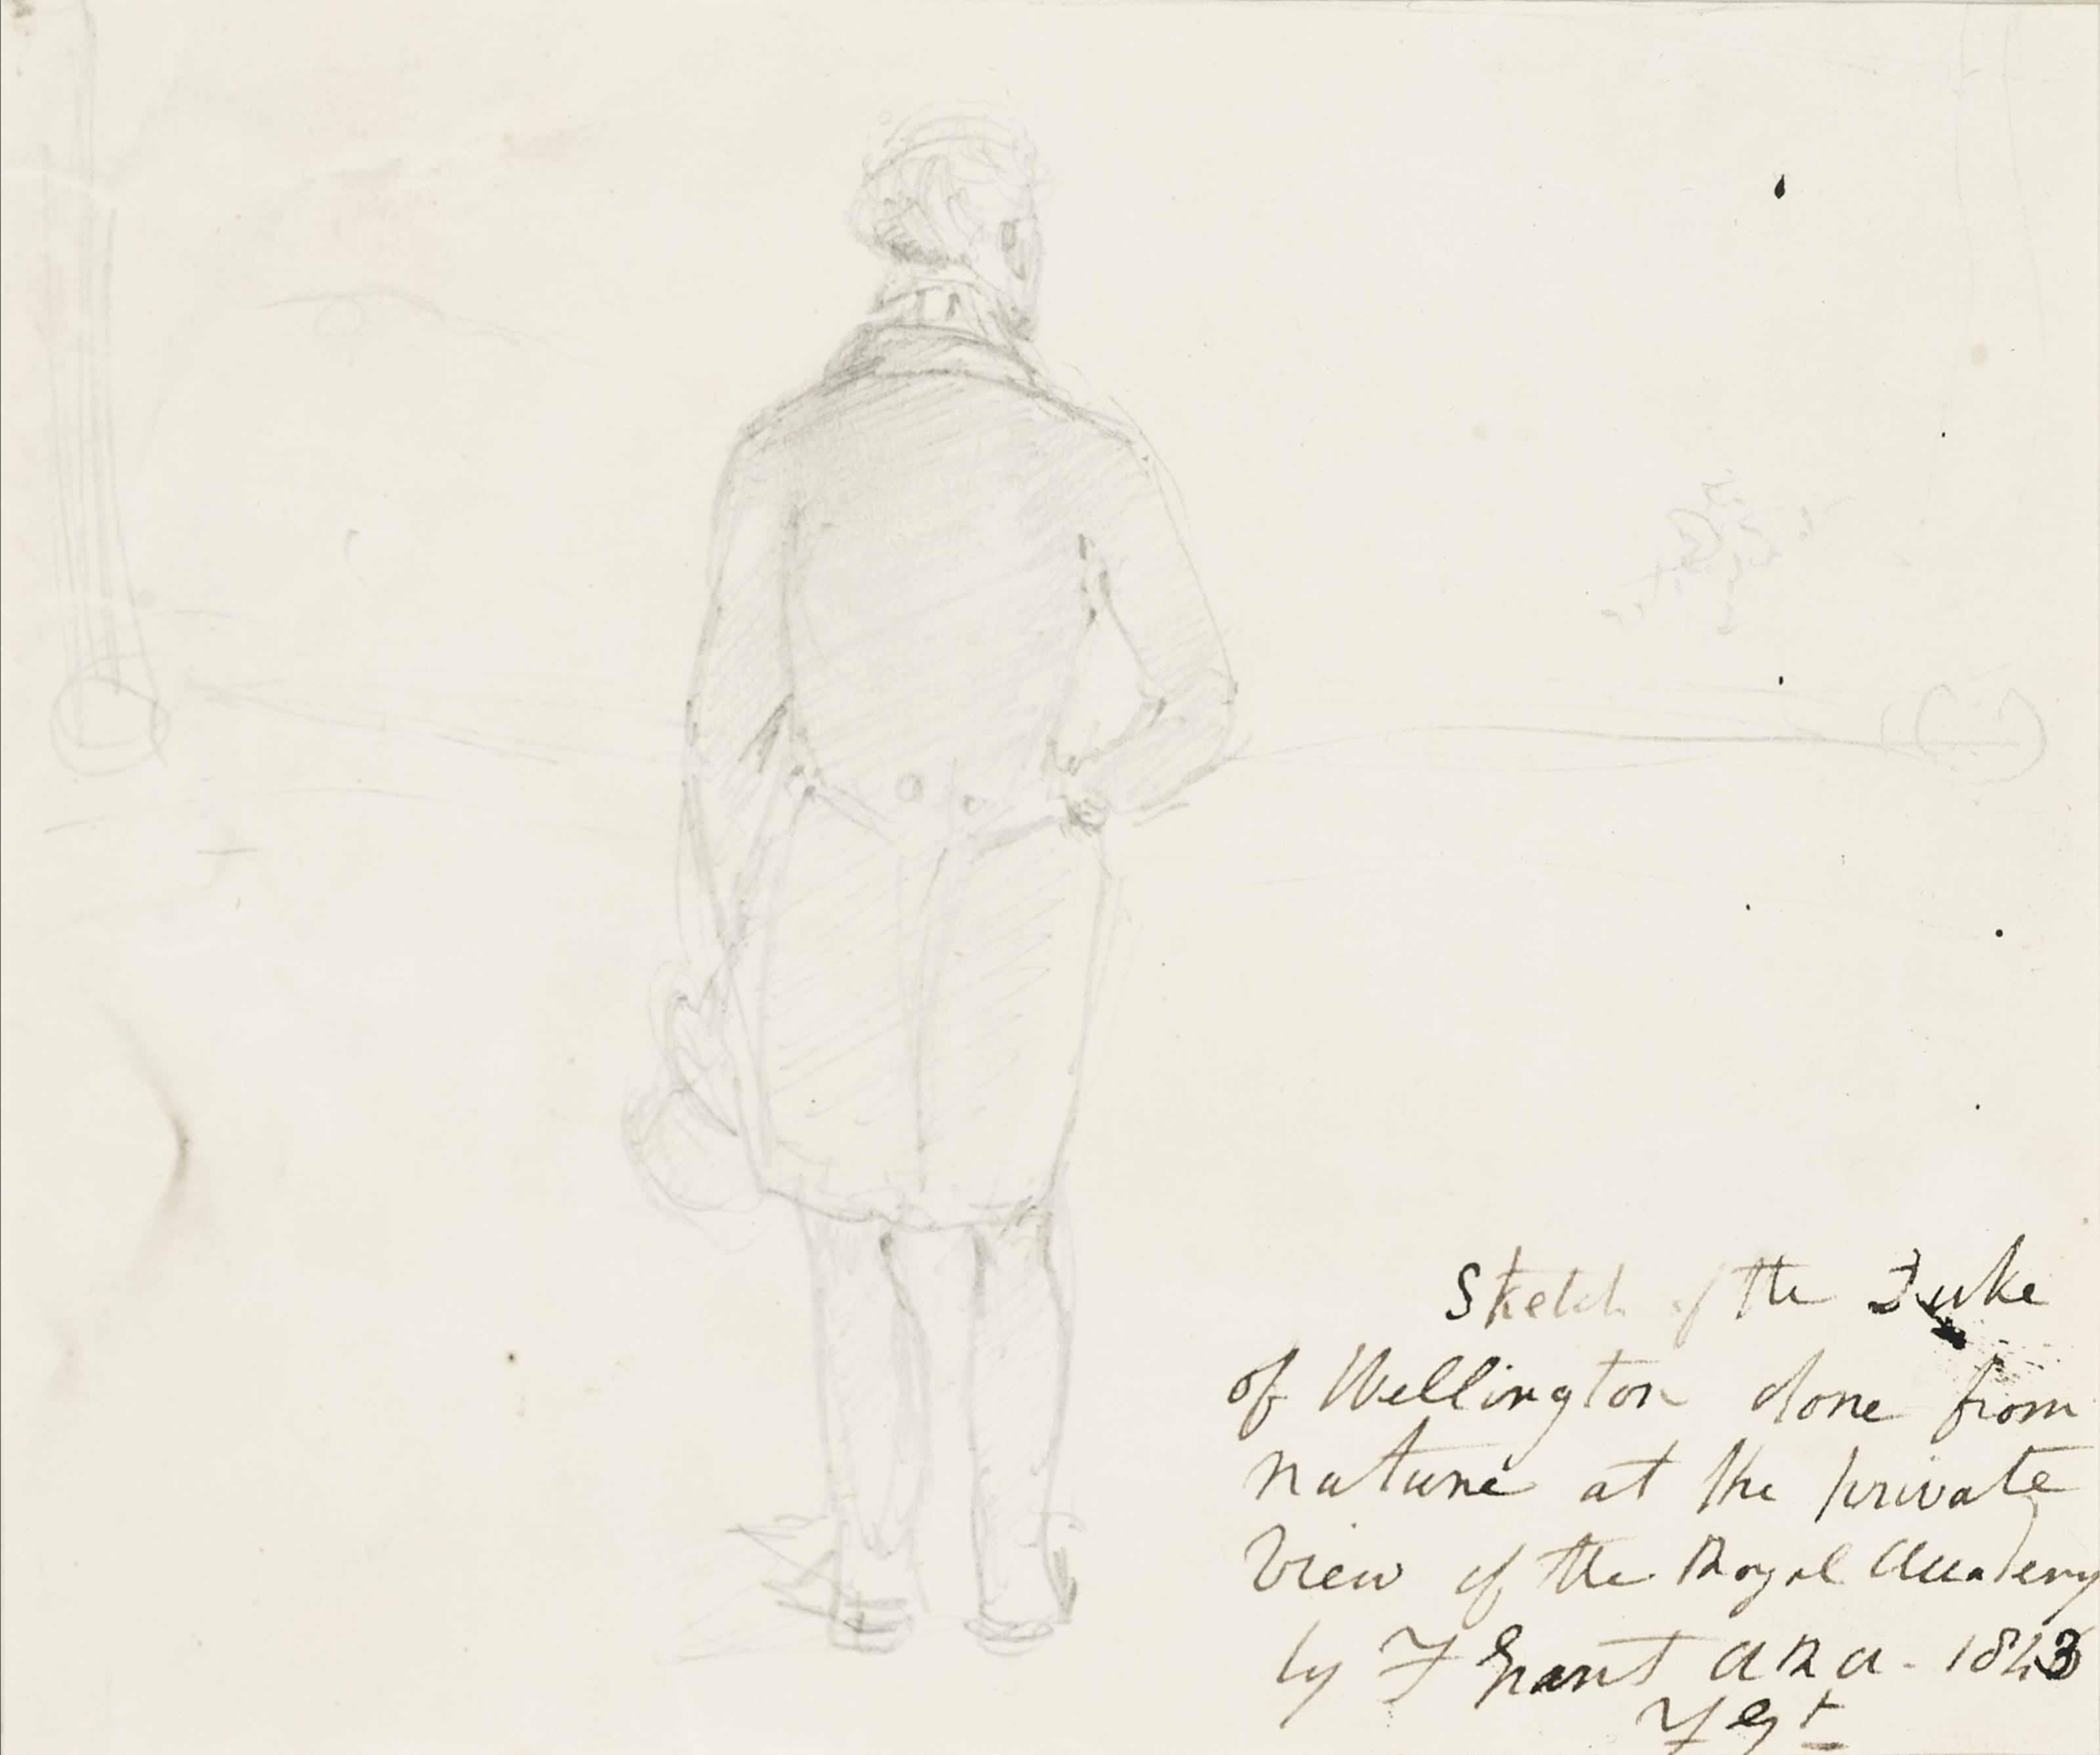 Sketch of the Duke
of Wellington done from
nature at the private
View of the Royal Academy
by F Grant ARA - 1843